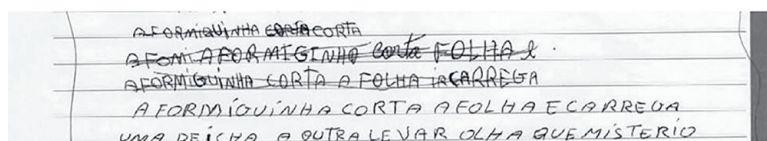 A FORMIQUINHA CORTA CORTA
A FOMI A FORMIGINHO corta FOLHA e.
A FORMIGUINHA CORTA A FOLHA CARREGA
A FORMÍQUINHA CORTA A FOLHA E CARREGA
UMA DEICHA A OUTRA LEVAR OLHA QUE MISTERIO